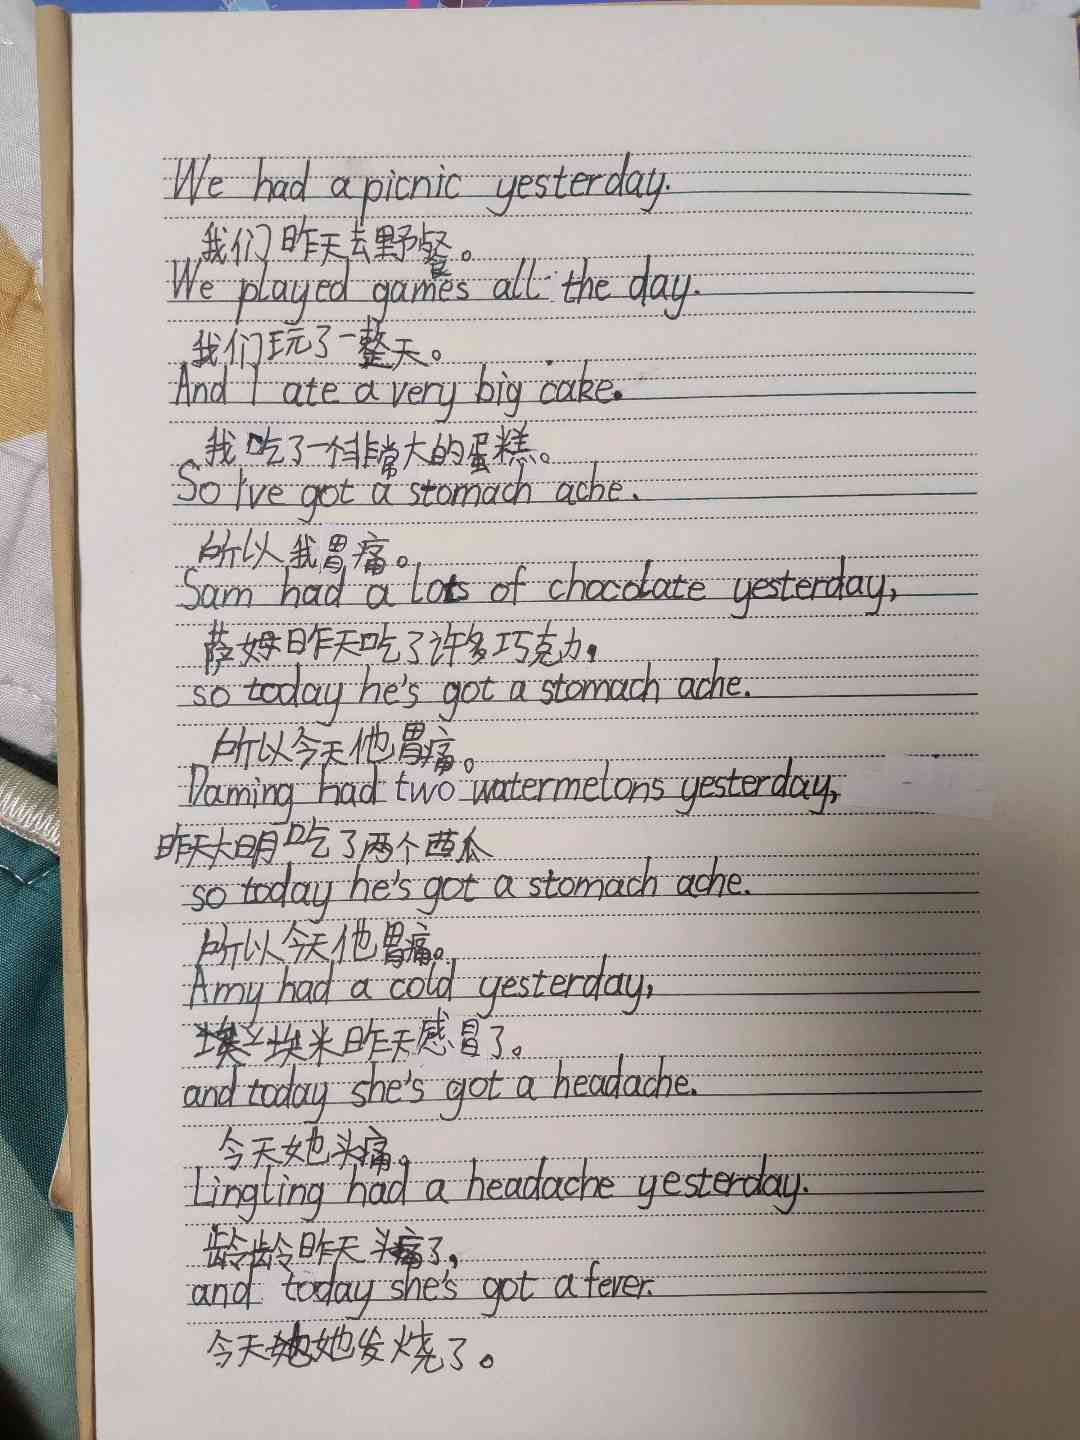 We had a picnic yesterday.
我们昨天去野餐。
We played games all the day.
我们玩了一整天。
And I ate a very big cake.
我吃了一个非常大的蛋糕。
So I've got a stomach ache.
所以我胃痛。
Sam had a lots of chocolate yesterday,
萨姆昨天吃了许多巧克力,
so today he's got a stomach ache.
所以今天他胃痛。
Daming had two watermelons yesterday,
昨天大明吃了两个西瓜
so today he's got a stomach ache.
所以今天他胃痛。
Amy had a cold yesterday,
埃米昨天感冒了。
and today she's got a headache.
今天她头痛。
Lingling had a headache yesterday.
龄龄昨天头痛了,
and today she's got a fever.
今天她发烧了。